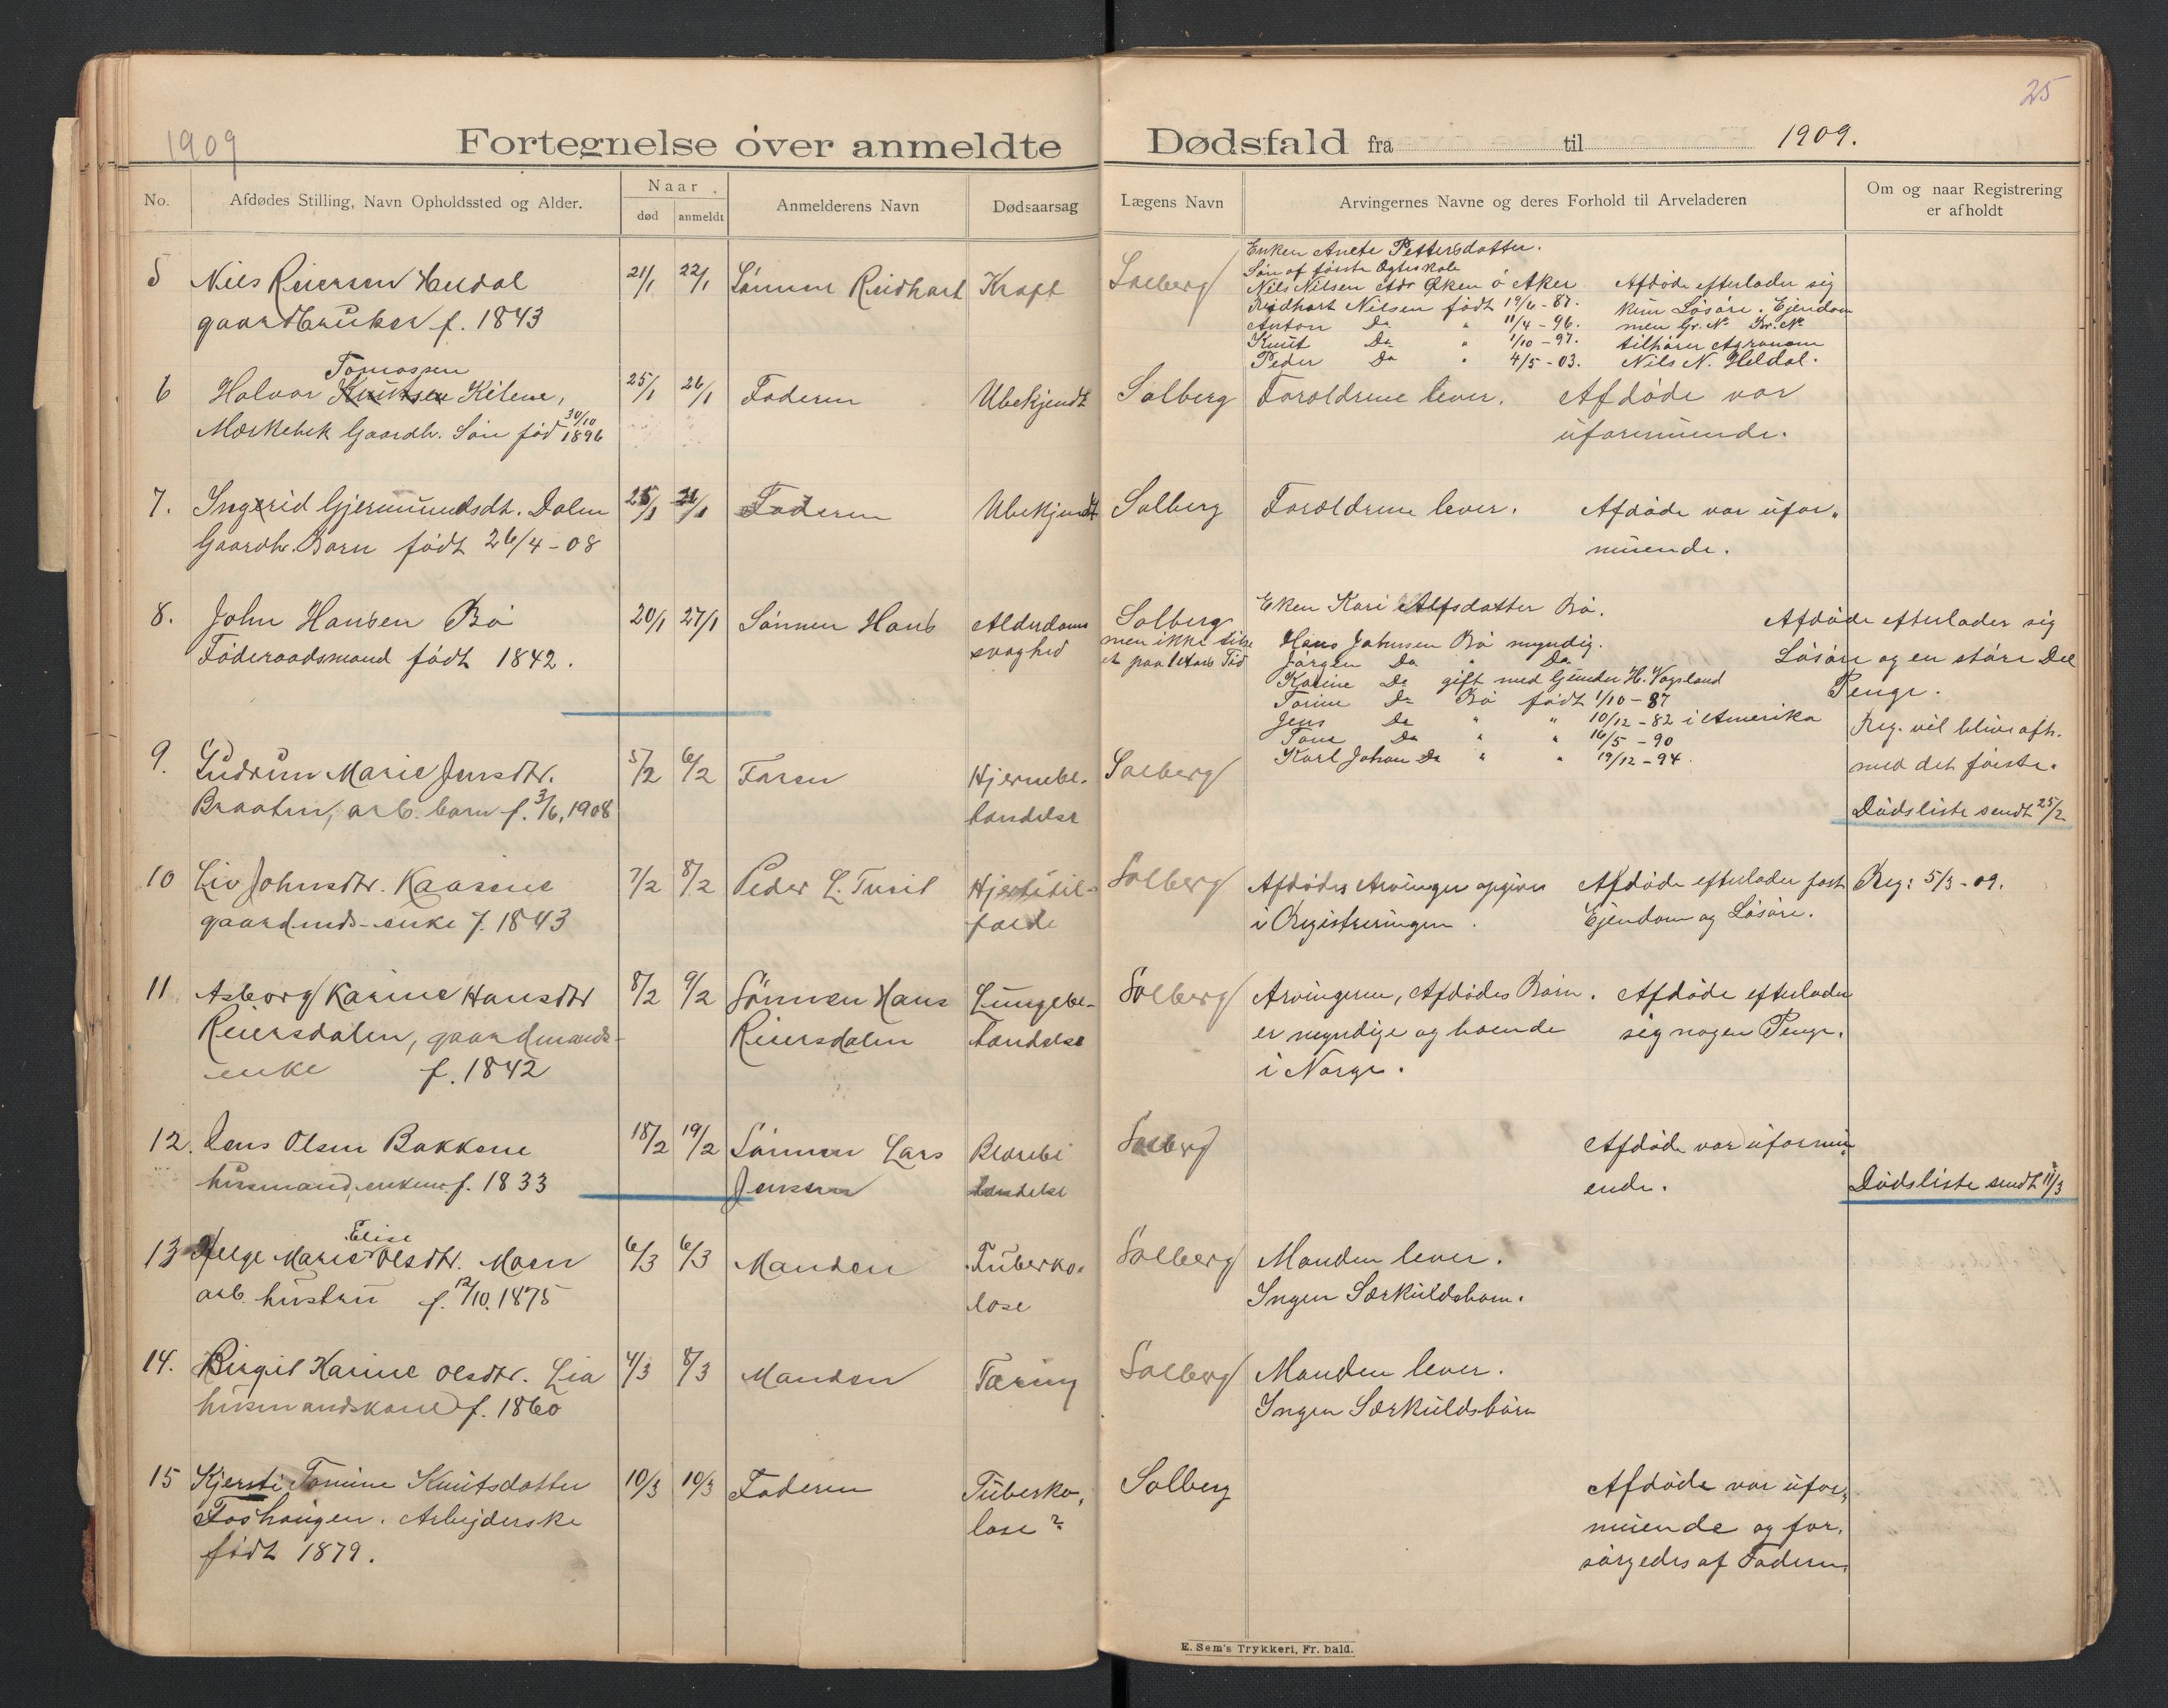 25
1909
Fortegnelse over anmeldte Dødsfald fra til 1909.
No.
Afdødes Stilling, Navn Opholdssted og Alder.
Naar
død
anmeldt
Anmelderens Navn
Dødsaarsag
Lægens Navn
Arvingernes Navne og deres Forhold til Arveladeren
Om og naar Registrering
er afholdt
5 Nils Reiersen Heldal
gaardbruker f. 1843
21/1 22/1 Sønnen Reidhart Kræft Solberg
Enken Anete Pettersdatter.
Søn af første Ægteskab
Nils Nilsen Adr Øken ó Aker
Reidhart Nilsen født 19/6-87.
Anton Do " 11/4-96.
Knut Do " 1/10-97.
Peder Do " 4/5-03.
Afdøde efterlader sig
kun Løsøre. Ejendom
men Gr. No Br. No
tilhører Agronom
Nils N. Heldal.
6 Halvor Knutsen Kilene,
Tomassen
Mærkebek Gaardb. Søn fød 30/10 1896
25/1 26/1 Faderen Ubekjendt Solberg
Forældrene lever. Afdøde var
uformuende.
7. Ingerid Gjermundsdt. Dalen
Gaardb. Barn født 26/4-08
25/1 26/1 Faderen Ubekjendt Solberg
Forældrene lever. Afdøde var ufor-
muende.
8. John Hansen Bø
Føderaadsmand født 1842.
20/1 27/1 Sønnen Hans Alderdoms
svaghed
Solberg
men ikke tilse
et paa 1 Aars Tid
Eken Kari Alfsdatter Bø.
Hans Johnsen Bø myndig.
Jørgen Do " Do
Karine Do gift med Gunder H. Vegsland
Torine Do Bø født 1/10-87
Jens Do " " 10/12-82 i Amerika
Tone Do " " 16/5-90
Karl Johan Do " " 19/12-94.
Afdøde efterlader sig
Løsøre og en større Del
Penge.
Reg. vil blive afh.
med det første.
Dødsliste sendt 25/2
9. Gudrun Marie Jensdtr.
Braaten, arb. barn f. 3/6, 1908
5/2 6/2 Faren Hjernebe-
tændelse
Solberg
10 Liv Johnsdtr. Kaasene
gaardmds-enke f. 1843
7/2 8/2 Peder L. Tveit Hjertetil-
fælde
Solberg
Afdødes Arvinger opgives
i Registreringen.
Afdøde efterlader fast
Ejendom og Løsøre.
Reg: 5/3-09.
11 Asborg Karine Hansdtr
Reiersdalen, gaardmands-
enke f. 1842
8/2 9/2 Sønnen Hans
Reiersdalen
Lungebe-
tændelse
Solberg
Arvingerne, Afdødes Børn.
er myndige og boende
i Norge.
Afdøde efterlader
sig nogen Penge.
12. Jens Olsen Bakkene
husmand, enkem. f. 1833
18/2 19/2 Sønnen Lars
Jensen
Blærebe
tændelse
Solberg
Afdøde var uformu-
ende.
Dødsliste sendt 11/3
13 Helge Marie Olsdtr. Moen
Elise
arb. hustru f. 12/10. 1875
6/3 6/3 Manden Tuberku-
lose
Solberg
Manden lever.
Ingen Særkuldsbarn.
14. Birgit Karine Olsdtr. Lia
husmandskone f. 1860
4/3 8/3 Manden Tæring Solberg
Manden lever.
Ingen Særkuldsbørn
15 Kjersti Tomine Knutsdatter
Foshaugen. Arbejderske
født 1879.
10/3 10/3 Faderen Tuberku-
lose?
Solberg
Afdøde var ufor-
muende og for-
sørgedes af Faderen.
E. Sem's Trykkeri, Fr. hald.